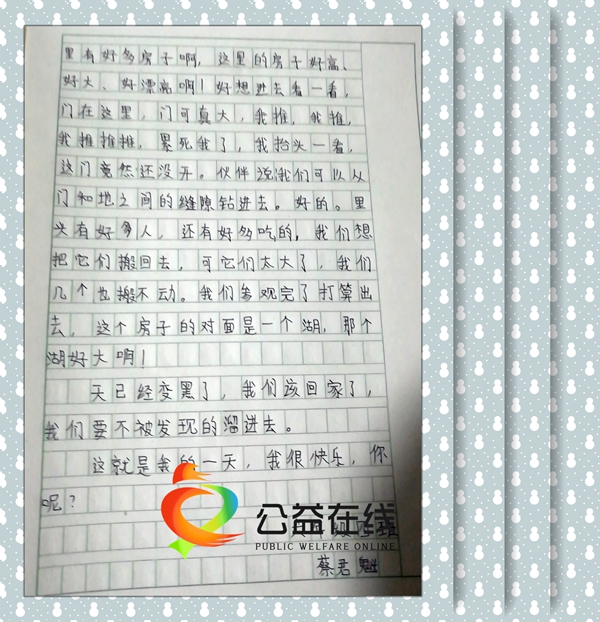 里有好多房子啊，这里的房子好高、
好大、好漂亮啊！好想进去看一看，
门在这里，门可真大，我推，我推，
我推推推，累死我了，我抬头一看，
这门竟然还没开。伙伴说我们可以从
门和地之间的缝隙钻进去。好的。里
头有好多人，还有好多吃的，我们想
把它们搬回去，可它们太大了，我们
几个也搬不动。我们参观完了打算出
去，这个房子的对面是一个湖，那个
湖好大啊！
天已经变黑了，我们该回家了，
我们要不被发现的溜进去。
这就是我的一天，我很快乐，你
呢？
公益在线
PUBLIC WELFARE ONLINE
蔡君魁